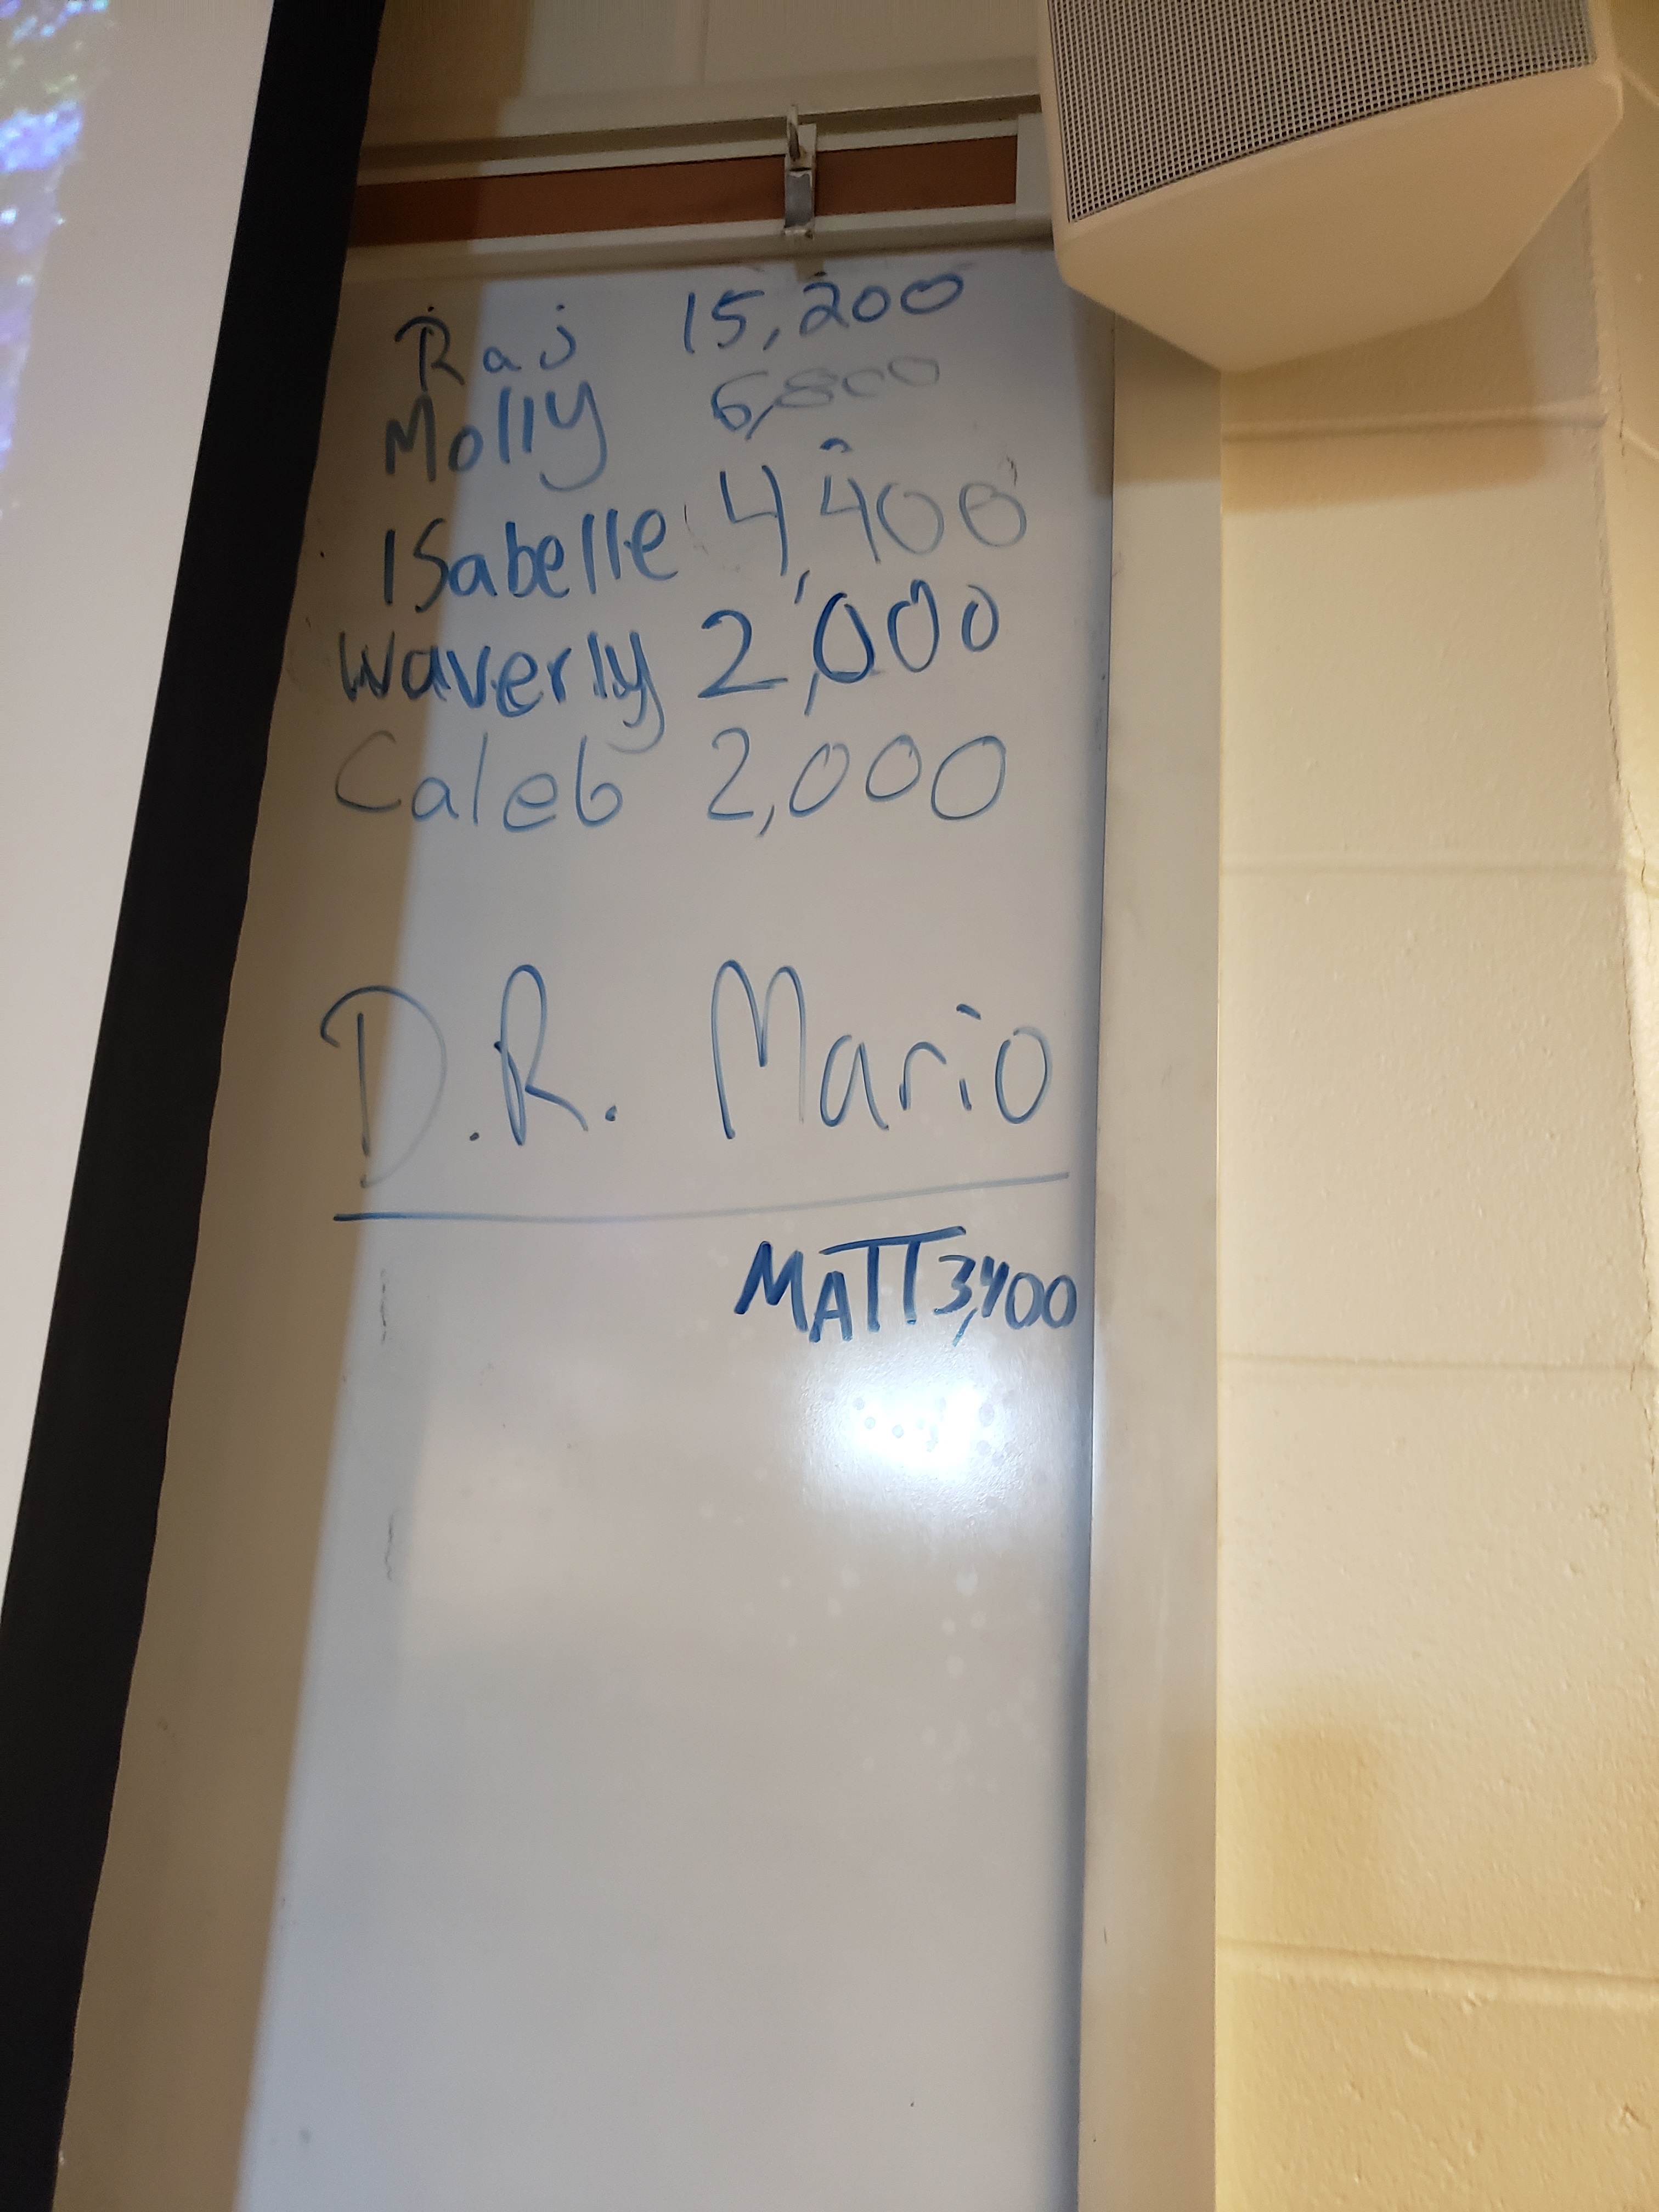 Raj 15,200
Molly 6,800
ISabelle 4,400
Waverly 2,000
Caleb 2,000
D.R. Mario
MATT 3,400